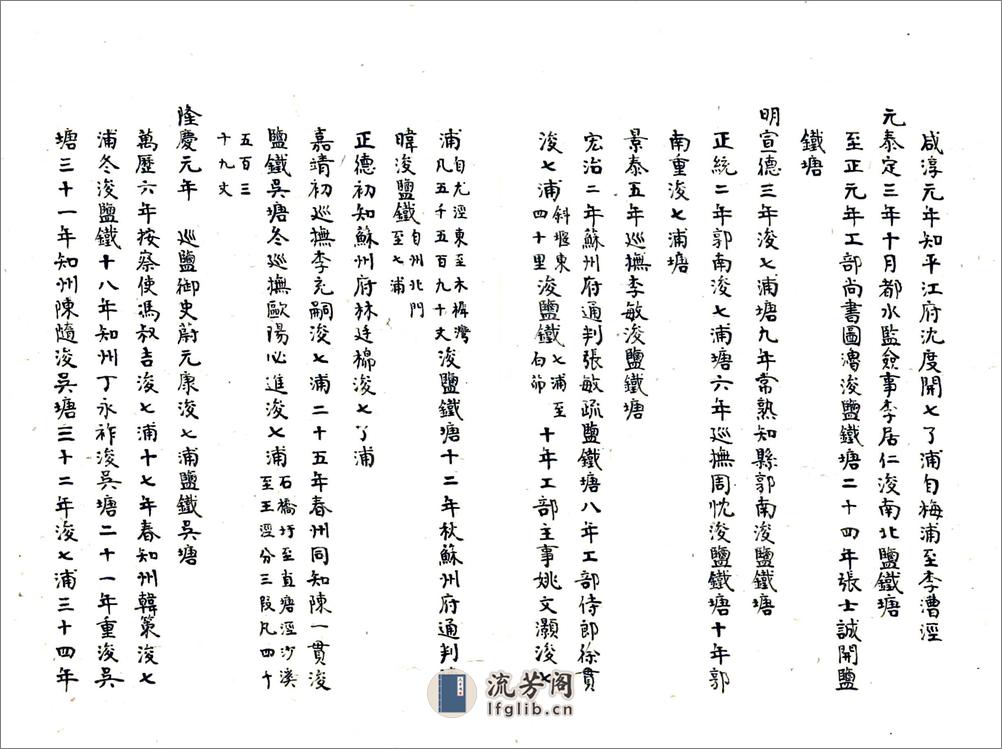 咸淳元年知平江府沈度開七了浦自梅浦至李漕涇
元泰定三年十月都水監僉事李居仁浚南北鹽鐵塘
至正元年工部尚書圖魯浚鹽鐵塘二十四年張士誠開鹽
鐵塘
明宣德三年浚七浦塘九年常熟知縣郭南浚鹽鐵塘
正統二年郭南浚七浦塘六年巡撫周忱浚鹽鐵塘十年郭
南重浚七浦塘
景泰五年巡撫李敏浚鹽鐵塘
宏治二年蘇州府通判張敏疏鹽鐵塘八年工部侍郎徐貫
浚七浦斜堰東四十里浚鹽鐵七浦至石茆十年工部主事姚文灝浚七
浦自尤涇東至木樨灣凡五千五百九十丈浚鹽鐵塘十二年秋蘇州府通判
暐浚鹽鐵自州北門至七浦
正德初知蘇州府林廷㭿浚七了浦
嘉靖初巡撫李充嗣浚七浦二十五年春州同知陳一貫浚
鹽鐵吳塘冬巡撫歐陽必進浚七浦石橋圩至直塘涇沙溪至王涇分三段凡四千
五百三十九丈
隆慶元年 巡鹽御史蔚元康浚七浦鹽鐵吳塘
萬歷六年按察使馮叔吉浚七浦十七年春知州韓策浚七
浦冬浚鹽鐵十八年知州丁永祚浚吳塘二十一年重浚吳
塘三十一年知州陳隨浚吳塘三十二年浚七浦三十四年
流芳阁
lfglib.cn